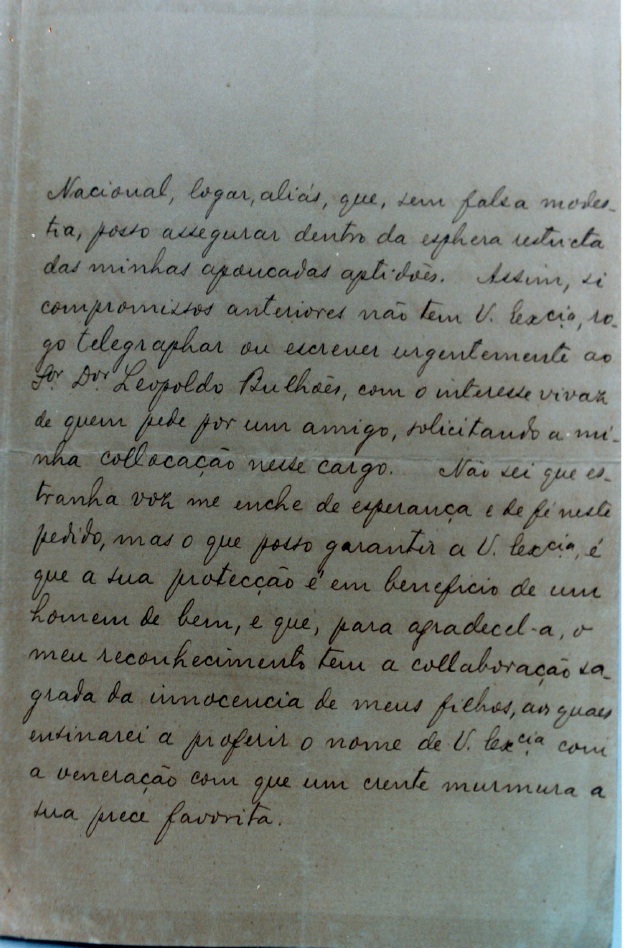 Nacional, logar, aliás, que, sem falsa modes-
tia, posso assegurar dentro da esphera restricta
das minhas apoucadas aptidões. Assim, si
compromissos anteriores não tem V. Excia, ro-
go telegraphar ou escrever urgentemente ao
Sor Dor Leopoldo Bulhões, com o interesse vivaz
de quem pede por um amigo, solicitando a mi-
nha collocação nesse cargo. Não sei que es-
tranha voz me enche de esperança e de fé neste
pedido, mas o que posso garantir a V. Excia, é
que a sua protecção é em beneficio de um
homem de bem, e que, para agradecel-a, o
meu reconhecimento tem a collaboração sa-
grada da innocencia de meus filhos, aos quaes
ensinarei a proferir o nome de V. Excia com
a veneração com que um crente murmura a
sua prece favorita.